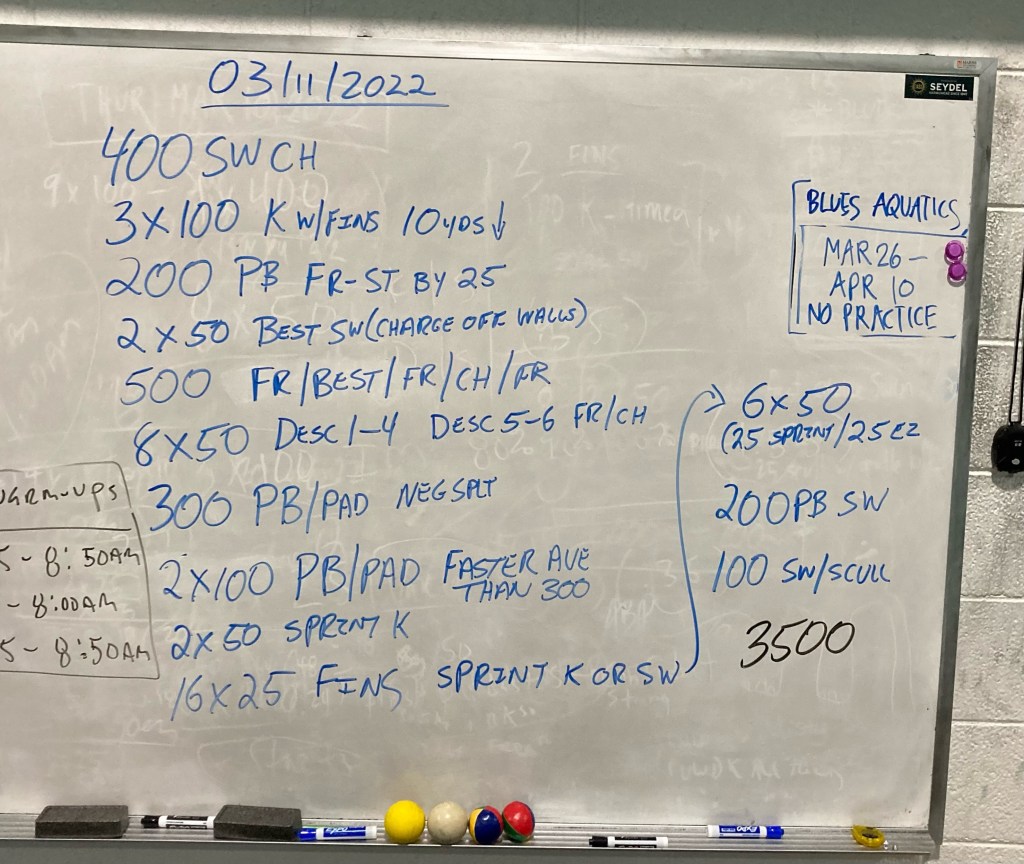 03/11/2022
400 SW CH
3X100 K W/FINS 10YDS↓
200 PB FR-ST BY 25
2 X 50 BEST SW (CHARGE OFF WALLS)
500 FR/BEST/FR/CH/FR
8X50 DESC 1-4 DESC 5-6 FR/CH
300 PB/PAD NEG SPLT
2X100 PB/PAD FASTER AVE
THAN 300
2X50 SPRINT K
16X25 FINS SPRINT K OR SW
→ 6X50
(25 SPRINT/25 EZ
200 PB SW
100 SW/SCULL
3500
SEYDEL
BLUES AQUATICS
MAR 26 -
APR 10
NO PRACTICE
WARM-UPS
5 - 8:50AM
- 8:00AM
5 - 8:50AM